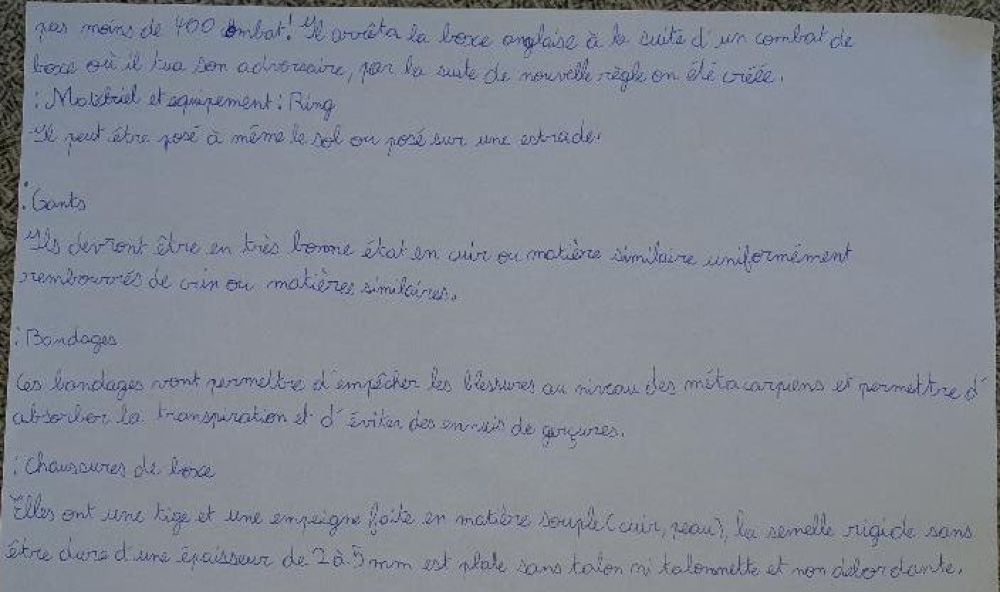 pas moins de 400 combat! Il arrêta la boxe anglaise à la suite d'un combat de
boxe où il tua son adversaire, par la suite de nouvelle règle on été créée.
: Matériel et equipement : Ring
Il peut être posé à même le sol ou posé sur une estrade.
: Gants
Ils devront être en très bonne état en cuir ou matière similaire uniformément
rembourrés de crin ou matières similaires.
: Bandages
Ces bandages vont permettre d'empêcher les blessures au niveau des métacarpiens et permettre d'
absorber la transpiration et d'éviter des ennuis de gerçures.
: Chaussures de boxe
Elles ont une tige et une empeigne faite en matière souple (cuir, peau), la semelle rigide sans
être dure d'une épaisseur de 2 à 5 mm est plate sans talon ni talonnette et non débordante.